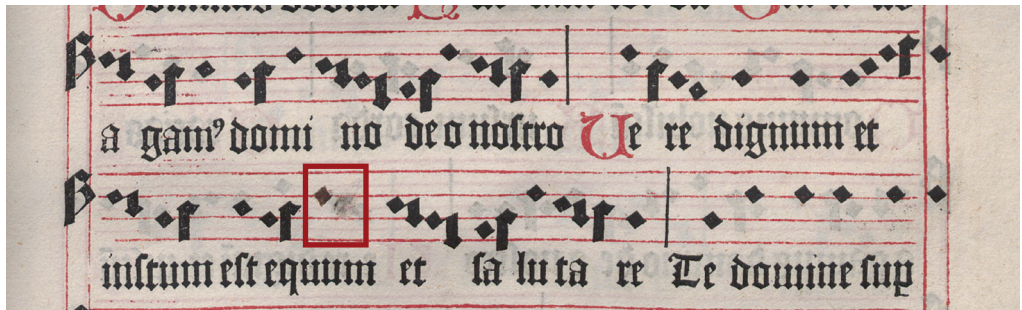 a gamꝰ domi no deo noſtro Ue re dignum et
iuſtum eſt equum et ſa lu ta re Te domine ſup